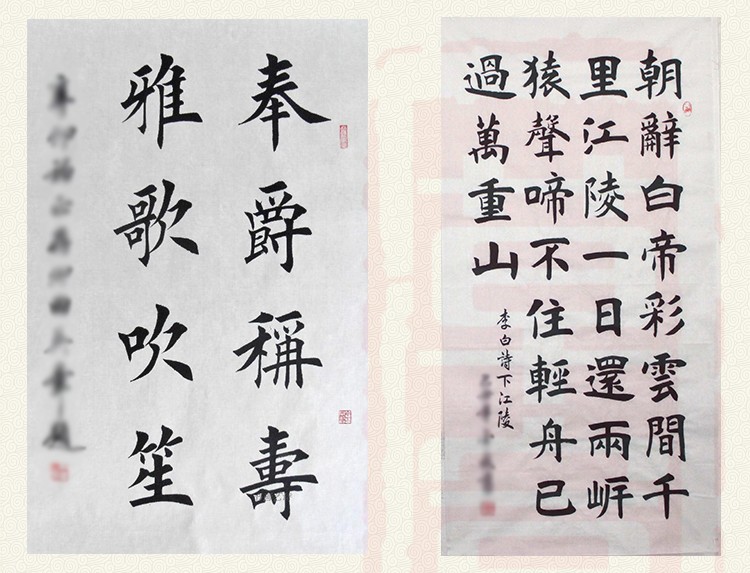 奉爵稱壽
雅歌吹笙
朝辭白帝彩雲間千
里江陵一日還兩岍
猿聲啼不住輕舟已
過萬重山
李白詩下江陵